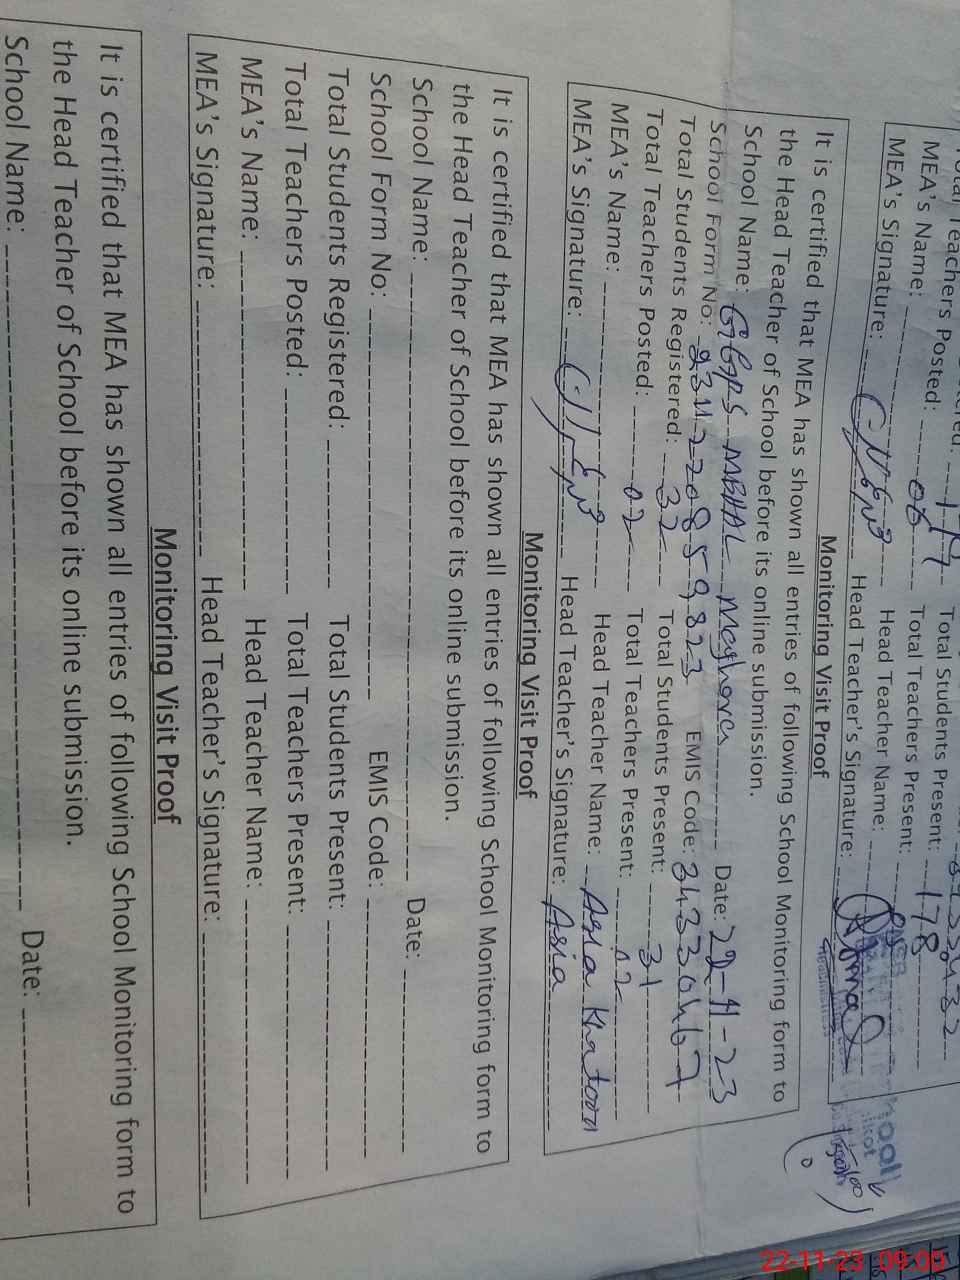 Total Teachers Posted: 06 Total Teachers Present:
MEA's Name: Head Teacher Name:
MEA's Signature: Head Teacher's Signature:
Monitoring Visit Proof
It is certified that MEA has shown all entries of following School Monitoring form to
the Head Teacher of School before its online submission.
School Name: GBPS MBHAL Date: 22-11-23
School Form No: EMIS Code:
Total Students Registered: 32 Total Students Present: 31
Total Teachers Posted: 02 Total Teachers Present: 02
MEA's Name: Head Teacher Name: Asia Khatoon
MEA's Signature: Head Teacher's Signature: Asia
Monitoring Visit Proof
It is certified that MEA has shown all entries of following School Monitoring form to
the Head Teacher of School before its online submission.
School Name: Date:
School Form No: EMIS Code:
Total Students Registered: Total Students Present:
Total Teachers Posted: Total Teachers Present:
MEA's Name: Head Teacher Name:
MEA's Signature: Head Teacher's Signature:
Monitoring Visit Proof
It is certified that MEA has shown all entries of following School Monitoring form to
the Head Teacher of School before its online submission.
School Name: Date:
22-11-23 09:00